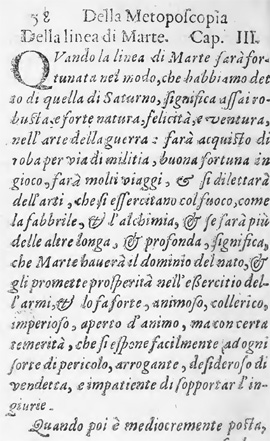 58 Della Metoposcopia
Della linea di Marte. Cap. III.
QVando la linea di Marte sarà for-
tunata nel modo, che habbiamo det
to di quella di Saturno, significa assai ro-
busta, e forte natura, felicità, e ventura,
nell'arte della guerra: farà acquisto di
roba per via di militia, buona fortuna in
gioco, farà molti viaggi, & si diletterà
dell'arti, che si essercitano col fuoco, come
la fabbrile, & l'alchimia, & se sarà più
delle altre longa, & profonda, significa,
che Marte hauerà il dominio del nato, &
gli promette prosperità nell'essercitio del-
l'armi, & lo fa forte, animoso, collerico,
imperioso, aperto d'animo, ma con certa
temerità, che si espone facilmente ad ogni
sorte di pericolo, arrogante, desideroso di
vendetta, e impatiente di sopportar l'in-
giurie.
Quando poi è mediocremente posta,